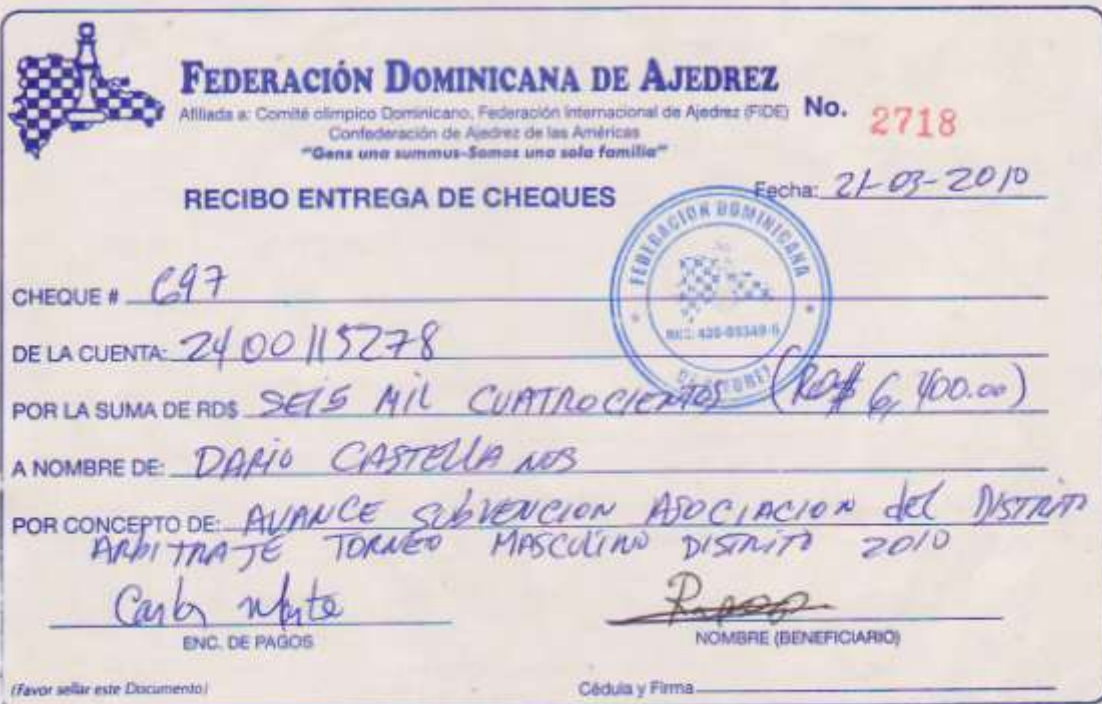 FEDERACIÓN DOMINICANA DE AJEDREZ
Afiliada a: Comité olímpico Dominicano, Federación Internacional de Ajedrez (FIDE)
No. 2718
Confederación de Ajedrez de las Américas
"Gens una summus-Somos una sola familia"
RECIBO ENTREGA DE CHEQUES
Fecha: 21-03-2010
FEDERACION DOMINICANA
DE AJEDREZ
CHEQUE # 697
DE LA CUENTA: 2400115278
POR LA SUMA DE RD$ SEIS MIL CUATROCIENTOS (RD$ 6,400.00)
A NOMBRE DE: DARIO CASTELLANOS
POR CONCEPTO DE: AVANCE SUBVENCION ASOCIACION del DISTRITO
ARBITRAJE TORNEO MASCULINO DISTRITO 2010
Carlos
ENC. DE PAGOS
NOMBRE (BENEFICIARIO)
(Favor sellar este Documento)
Cédula y Firma